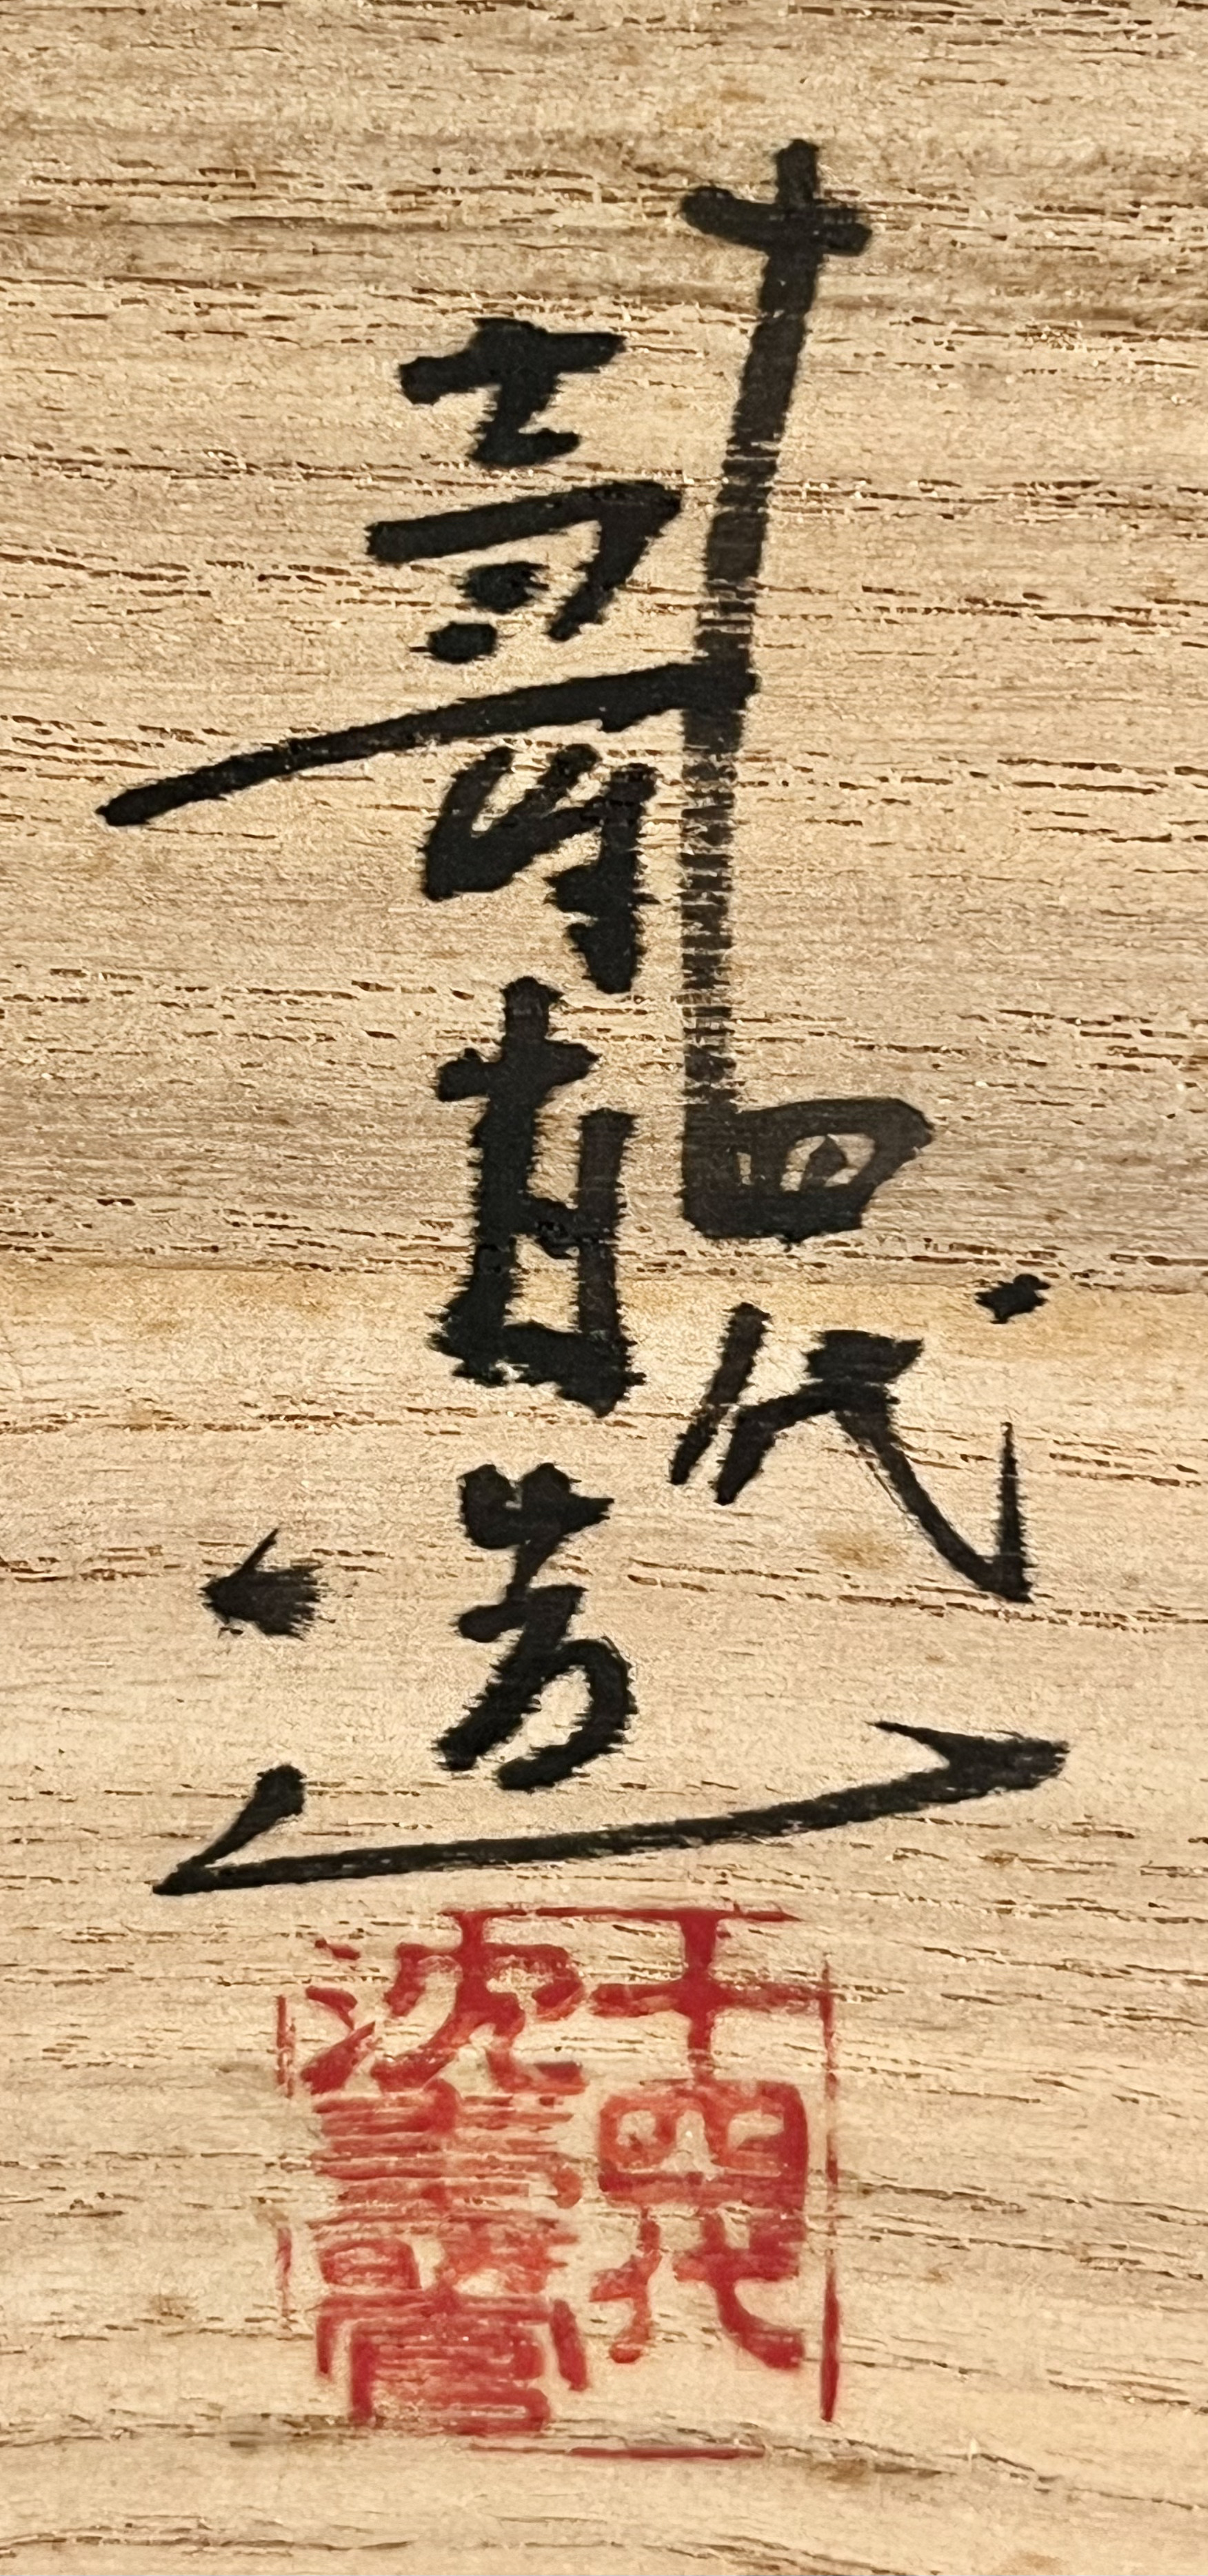 十四代
壽官 造
十四代
沈壽官